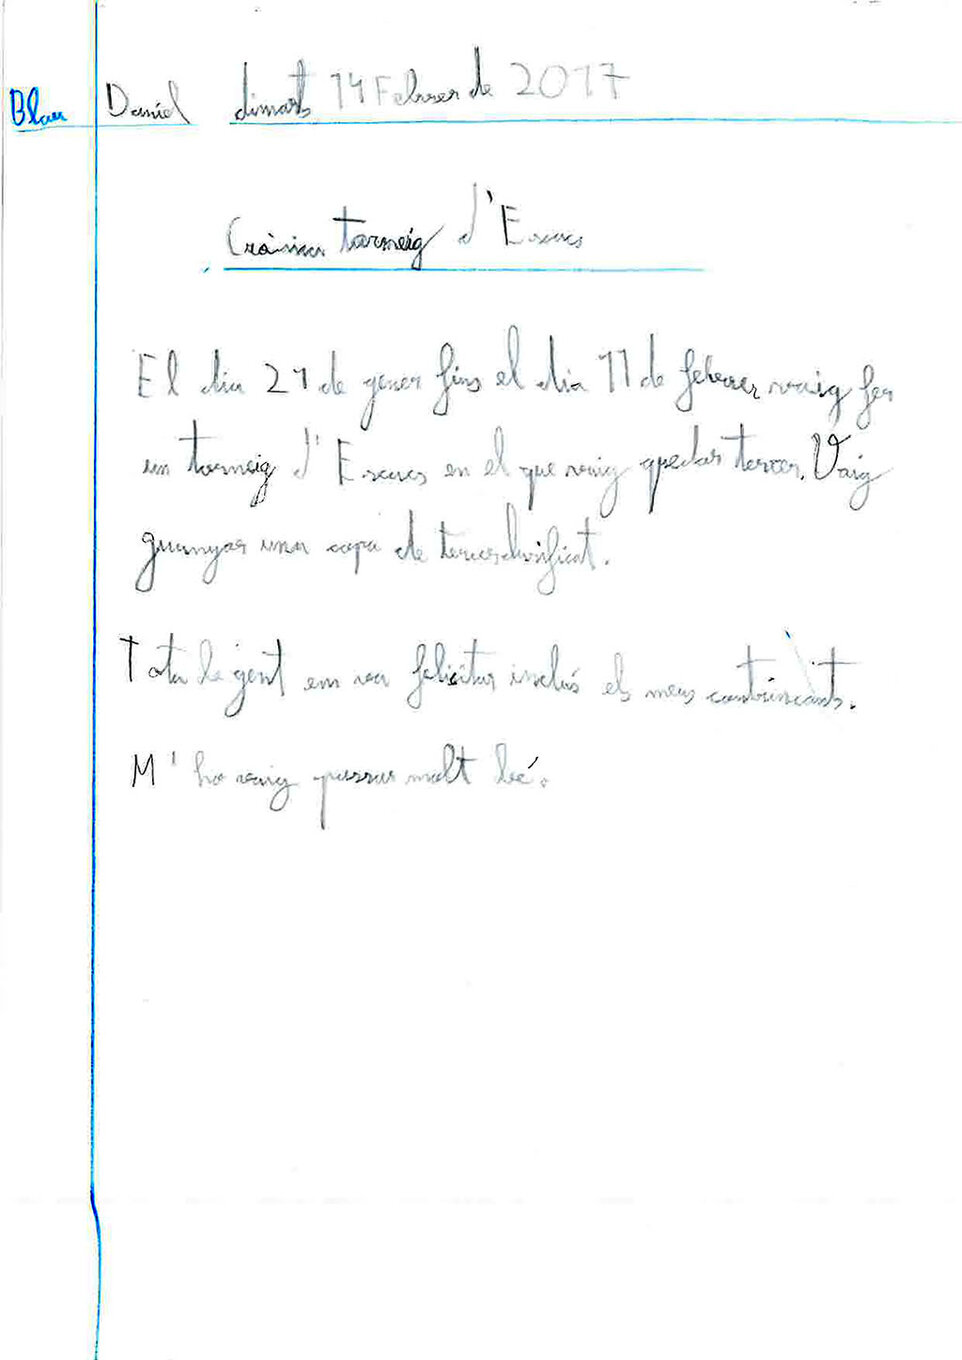 Blau Daniel dimarts 14 Febrer de 2017
Crònica torneig d'Escacs
El dia 21 de gener fins el dia 11 de febrer vaig fer
un torneig d'Escacs en el que vaig quedar tercer. Vaig
guanyar una copa de tercer clasificat.
Tota la gent em va felicitar inclús els meus contrincants.
M'ho vaig passar molt bé.